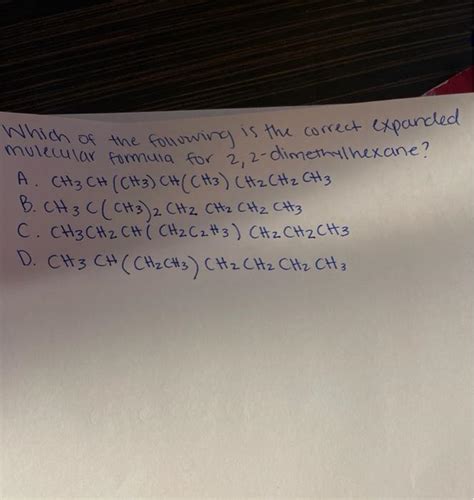 Which of the following is the correct expanded
molecular formula for 2,2-dimethylhexane?
A. CH3 CH (CH3) CH(CH3) CH2CH2 CH3
B. CH3 C (CH3)2 CH2 CH2 CH2 CH3
C. CH3CH2 CH ( CH2C2H3) CH2CH2CH3
D. CH3 CH (CH2CH3) CH2 CH2 CH2 CH3